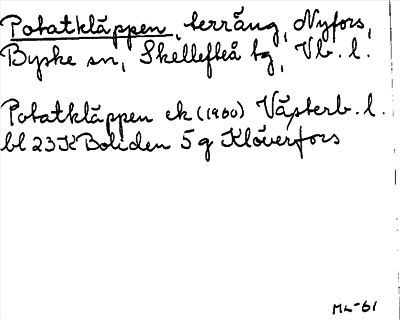 Potatkläppen, terräng, Nyfors,
Byske sn, Skellefteå tg, Vb. l.
Potatkläppen ek (1960) Västerb. l.
bl 23K Boliden 5g Klöverfors
ML-61